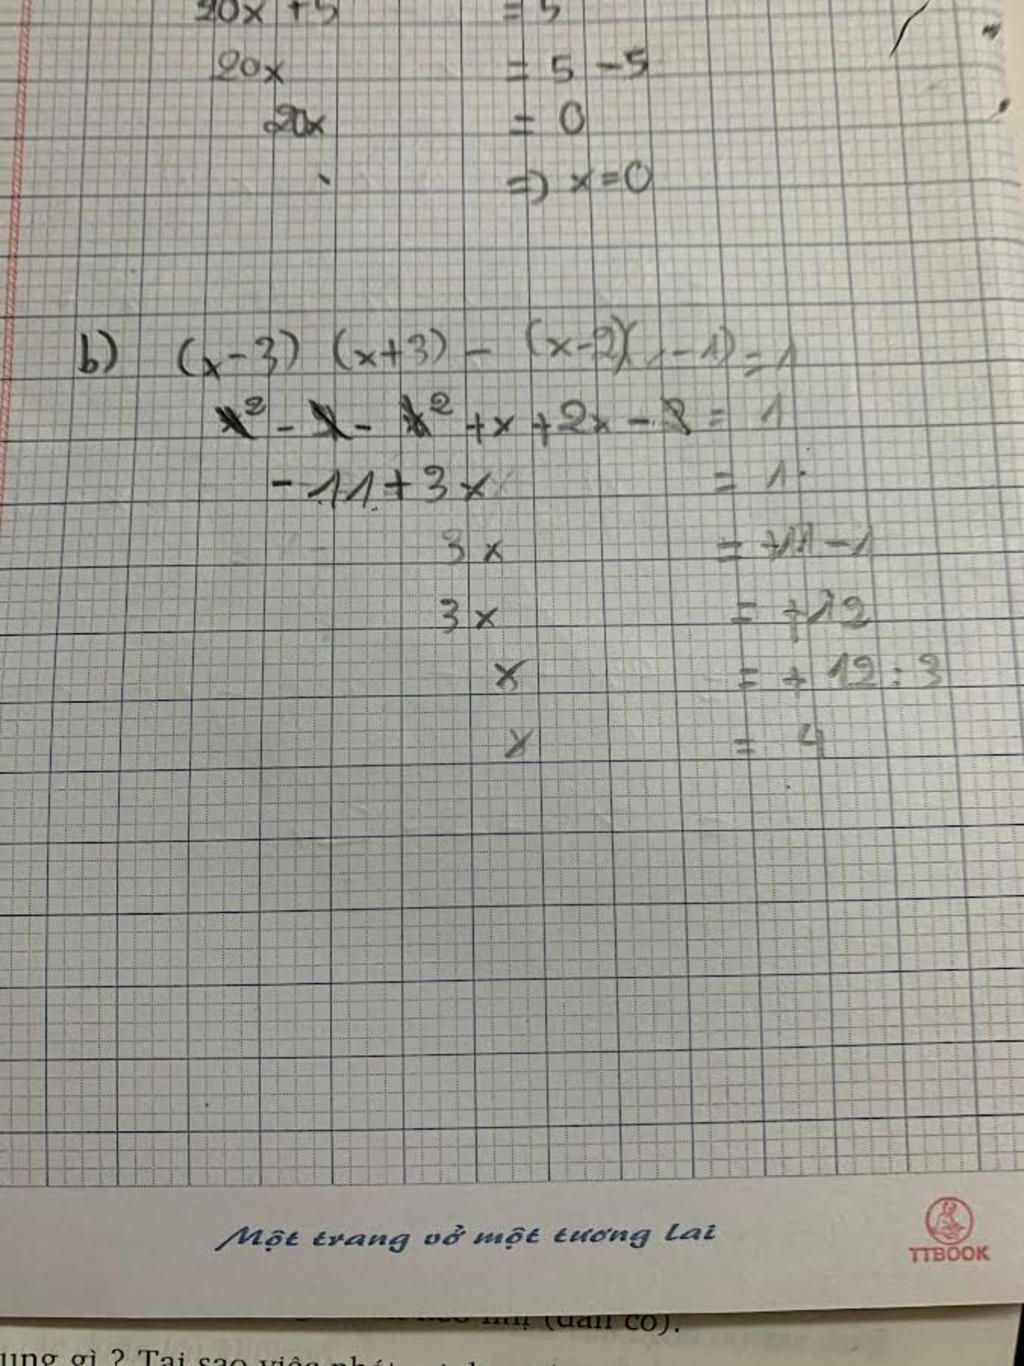 20x + 5 = 5
20x = 5 - 5
20x = 0
=> x = 0
b) (x-3) (x+3) - (x-2)( -1) = 1
x² - - x² + x + 2x - = 1
-11 + 3x = 1
3x = +11 - 1
3x = +12
x = + 12 : 3
x = 4
Một trang vở một tương lai
TTBOOK
(dân có).
ung gì ? Tại sao việc